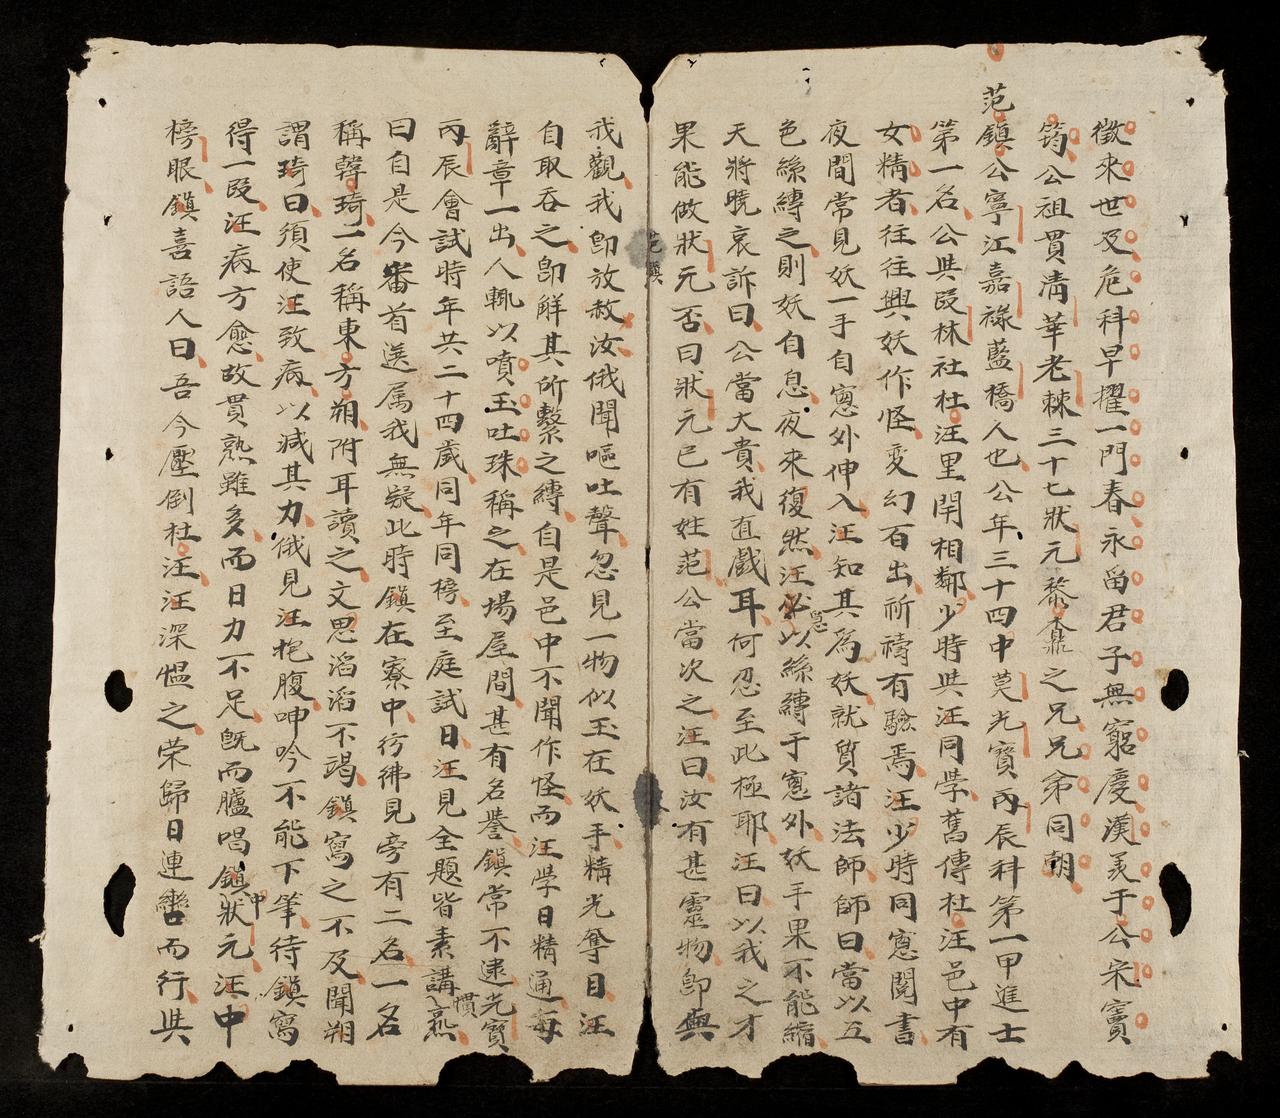 徵來世及危科早擢一門春永留君子無窮慶漢美于公宋竇
筠公祖貫清華老棘三十七狀元黎鼐之兄兄弟同朝
范鎮公寧江嘉祿藍橋人也公年三十四中莫光寶丙辰科第一甲進士
第一名公與段林社杜汪里閈相鄰少時與汪同學舊傳杜汪邑中有
女精者往往興妖作怪变幻百出祈禱有驗焉汪少時同窓閱書
夜間常見妖一手自窓外伸入汪知其為妖就質諸法師師曰當以五
色絲縛之則妖自息夜來復然汪急以絲縛于窓外妖手果不能縮
天將曉哀訴曰公當大貴我直戲耳何忍至此極耶汪曰以我之才
果能做狀元否曰狀元已有姓范公當次之汪曰汝有甚靈物卽與
范鎮
我觀我卽放赦汝俄聞嘔吐聲忽見一物似玉在妖手精光奪目汪
自取吞之卽解其所繫之縛自是邑中不聞作怪而汪學日精通每
辭章一出人輒以噴玉吐珠稱之在場屋間甚有名譽鎮常不逮光寶
丙辰會試時年共二十四歲同年同榜至庭試日汪見全題皆素講慣熟
曰自是今番首選属我無疑此時鎮在寮中彷彿見旁有二名一名
稱韓琦一名稱東方朔附耳讀之文思滔滔不竭鎮寫之不及聞朔
謂琦曰須使汪致病以减其力俄見汪抱腹呻吟不能下筆待鎮寫
得一段汪病方愈故貫熟雖多而日力不足旣而臚唱鎮中狀元汪中
榜眼鎮喜語人曰吾今壓倒杜汪汪深愠之荣歸日連轡而行與